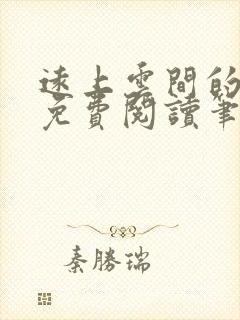 遠上雲間的
免費閱讀筆
秦勝瑞